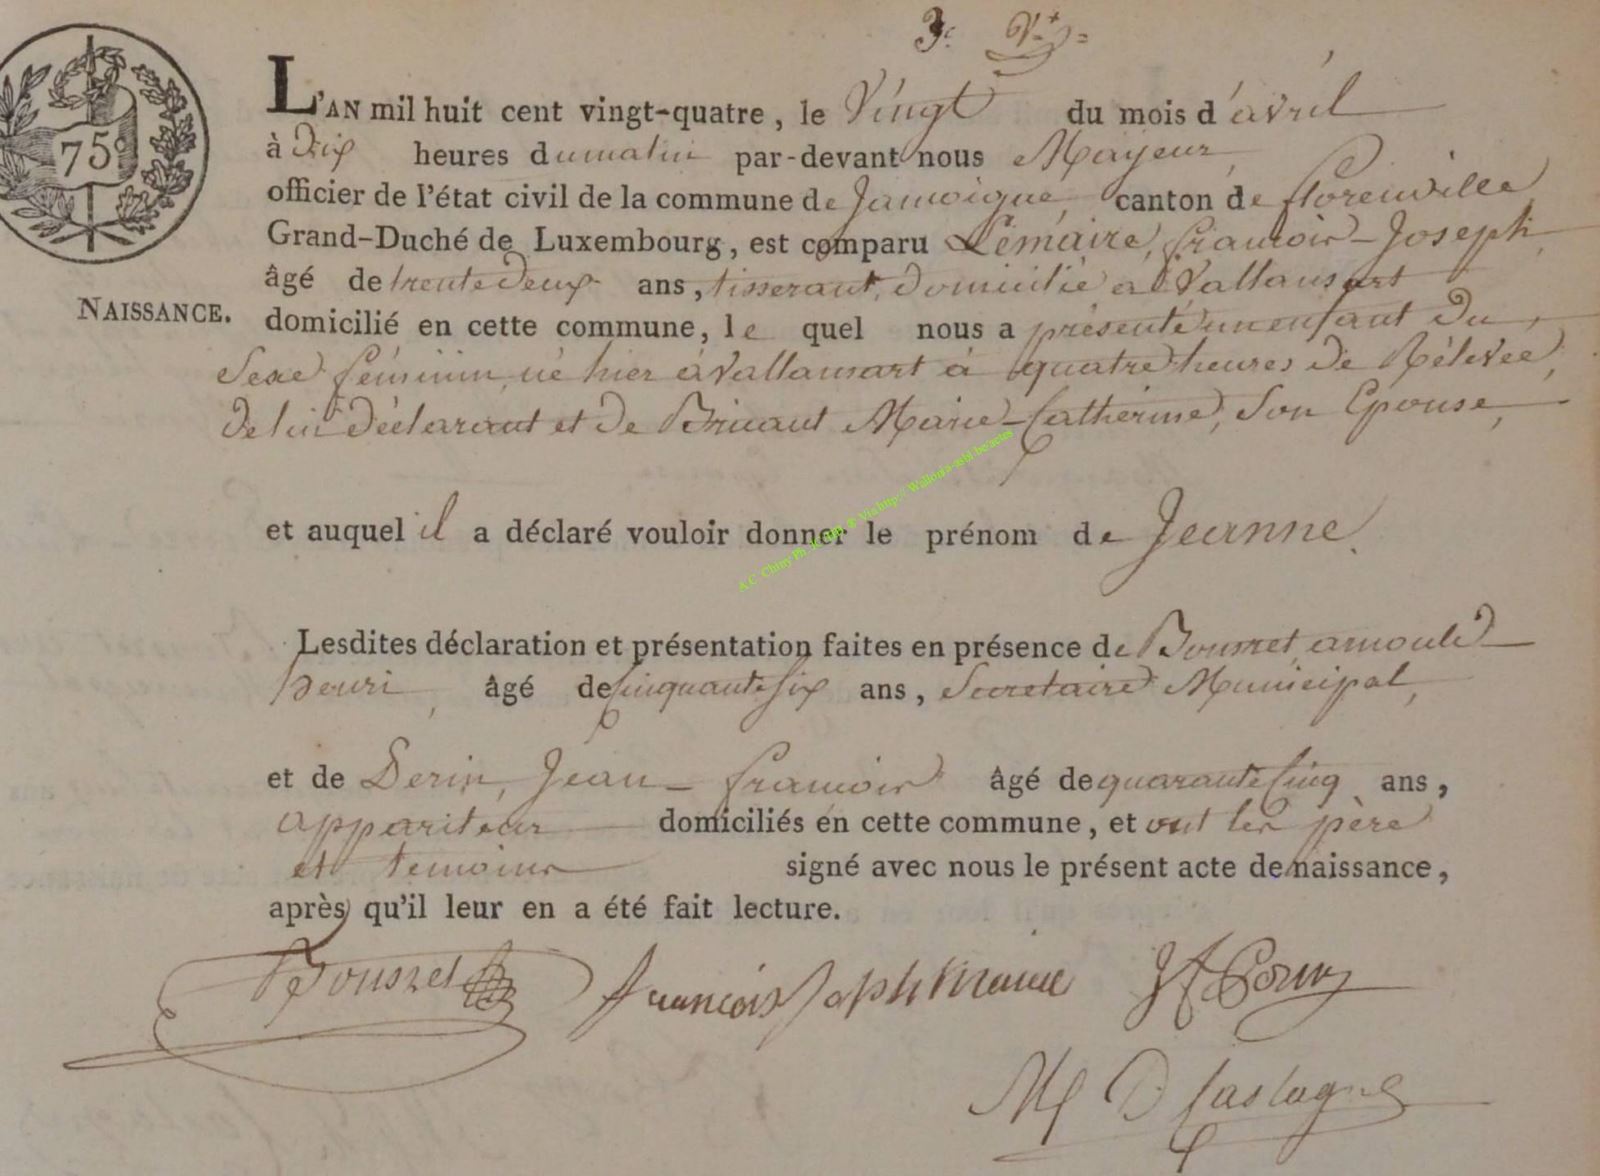 3e Vt
75c
L'AN mil huit cent vingt-quatre, le Vingt du mois d'avril
à dix heures du matin par-devant nous Mayeur,
officier de l'état civil de la commune de Jamoigne, canton de florenville
Grand-Duché de Luxembourg, est comparu Lemaire, francois-Joseph,
âgé de trente deux ans, tisserant, domicilié a Vallansart
NAISSANCE.
domicilié en cette commune, le quel nous a présenté un enfant du
Sexe féminin, né hier à Vallansart à quatre heures de Rélevée,
de lui déclarant et de Bricaut Marie-Catherine, Son Epouse,
et auquel il a déclaré vouloir donner le prénom de Jeanne.
Lesdites déclaration et présentation faites en présence de Bousret, arnould
henri, âgé de Cinquante six ans, Secretaire Municipal,
et de Derin, Jean-francois âgé de quarante Cinq ans,
appariteur domiciliés en cette commune, et ont les père
et temoins signé avec nous le présent acte de naissance,
après qu'il leur en a été fait lecture.
Bousret François Joseph lemaire
M D Castagne
A.C. Chiny Ph. via http:// Wallonia-asbl.be/actes